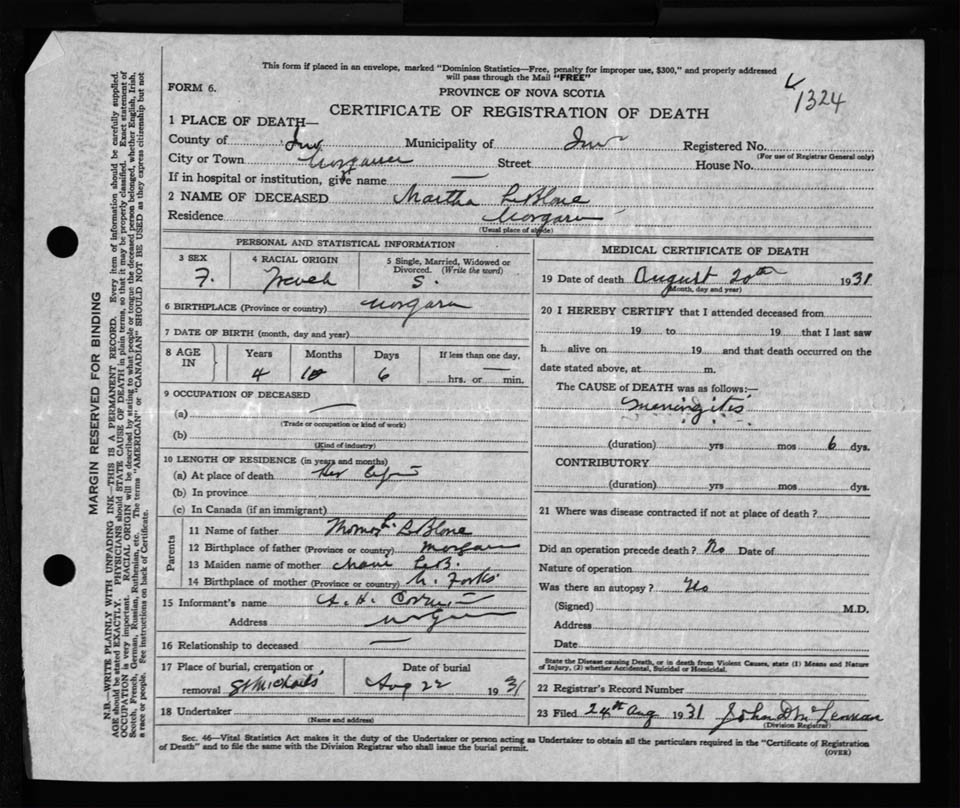 This form if placed in an envelope, marked "Dominion Statistics—Free, penalty for improper use, $300," and properly addressed
will pass through the Mail "FREE"
FORM 6.
PROVINCE OF NOVA SCOTIA
1324
CERTIFICATE OF REGISTRATION OF DEATH
1 PLACE OF DEATH—
County of Inv Municipality of Inv Registered No.
(For use of Registrar General only)
City or Town Margaree Street House No.
If in hospital or institution, give name —
2 NAME OF DECEASED Martha LeBlanc
Residence Margaree
(Usual place of abode)
PERSONAL AND STATISTICAL INFORMATION
3 SEX 4 RACIAL ORIGIN 5 Single, Married, Widowed or Divorced. (Write the word)
F. French S.
6 BIRTHPLACE (Province or country) Margaree
7 DATE OF BIRTH (month, day and year)
8 AGE IN Years Months Days If less than one day,
4 10 6 — hrs. or min.
9 OCCUPATION OF DECEASED
(a) —
(Trade or occupation or kind of work)
(b)
(Kind of industry)
10 LENGTH OF RESIDENCE (in years and months)
(a) At place of death Her life
(b) In province
(c) In Canada (if an immigrant)
Parents
11 Name of father Thomas L. LeBlanc
12 Birthplace of father (Province or country) Margaree
13 Maiden name of mother LeB.
14 Birthplace of mother (Province or country) Forks
15 Informant's name A. H.
Address Margaree
16 Relationship to deceased —
17 Place of burial, cremation or Date of burial
removal St Michaels Aug 22 1931
18 Undertaker
(Name and address)
MEDICAL CERTIFICATE OF DEATH
19 Date of death August 20th 1931
(Month, day and year)
20 I HEREBY CERTIFY that I attended deceased from
19 to 19 that I last saw
h alive on 19 and that death occurred on the
date stated above, at m.
The CAUSE of DEATH was as follows:—
Meningitis
(duration) yrs mos 6 dys.
CONTRIBUTORY
(duration) yrs mos dys.
21 Where was disease contracted if not at place of death?
Did an operation precede death? No Date of
Nature of operation
Was there an autopsy? No
(Signed) M.D.
Address
Date
State the Disease causing Death, or in death from Violent Causes, state (1) Means and Nature
of Injury, (2) whether Accidental, Suicidal or Homicidal.
22 Registrar's Record Number
23 Filed 24th Aug 1931 John D McLennan
(Division Registrar)
Sec. 46—Vital Statistics Act makes it the duty of the Undertaker or person acting as Undertaker to obtain all the particulars required in the "Certificate of Registration
of Death" and to file the same with the Division Registrar who shall issue the burial permit.
(OVER)
MARGIN RESERVED FOR BINDING
N.B.—WRITE PLAINLY WITH UNFADING INK—THIS IS A PERMANENT RECORD. Every item of information should be carefully supplied.
AGE should be stated EXACTLY. PHYSICIANS should STATE CAUSE OF DEATH in plain terms, so that it may be properly classified. Exact statement of
OCCUPATION is very important. RACIAL ORIGIN will be described by stating to what people or tongue the deceased person belonged, whether English, Irish,
Scotch, French, German, Russian, Ruthenian, etc. The terms "AMERICAN" or "CANADIAN" SHOULD NOT BE USED as they express citizenship but not
a race or people. See instructions on back of Certificate.